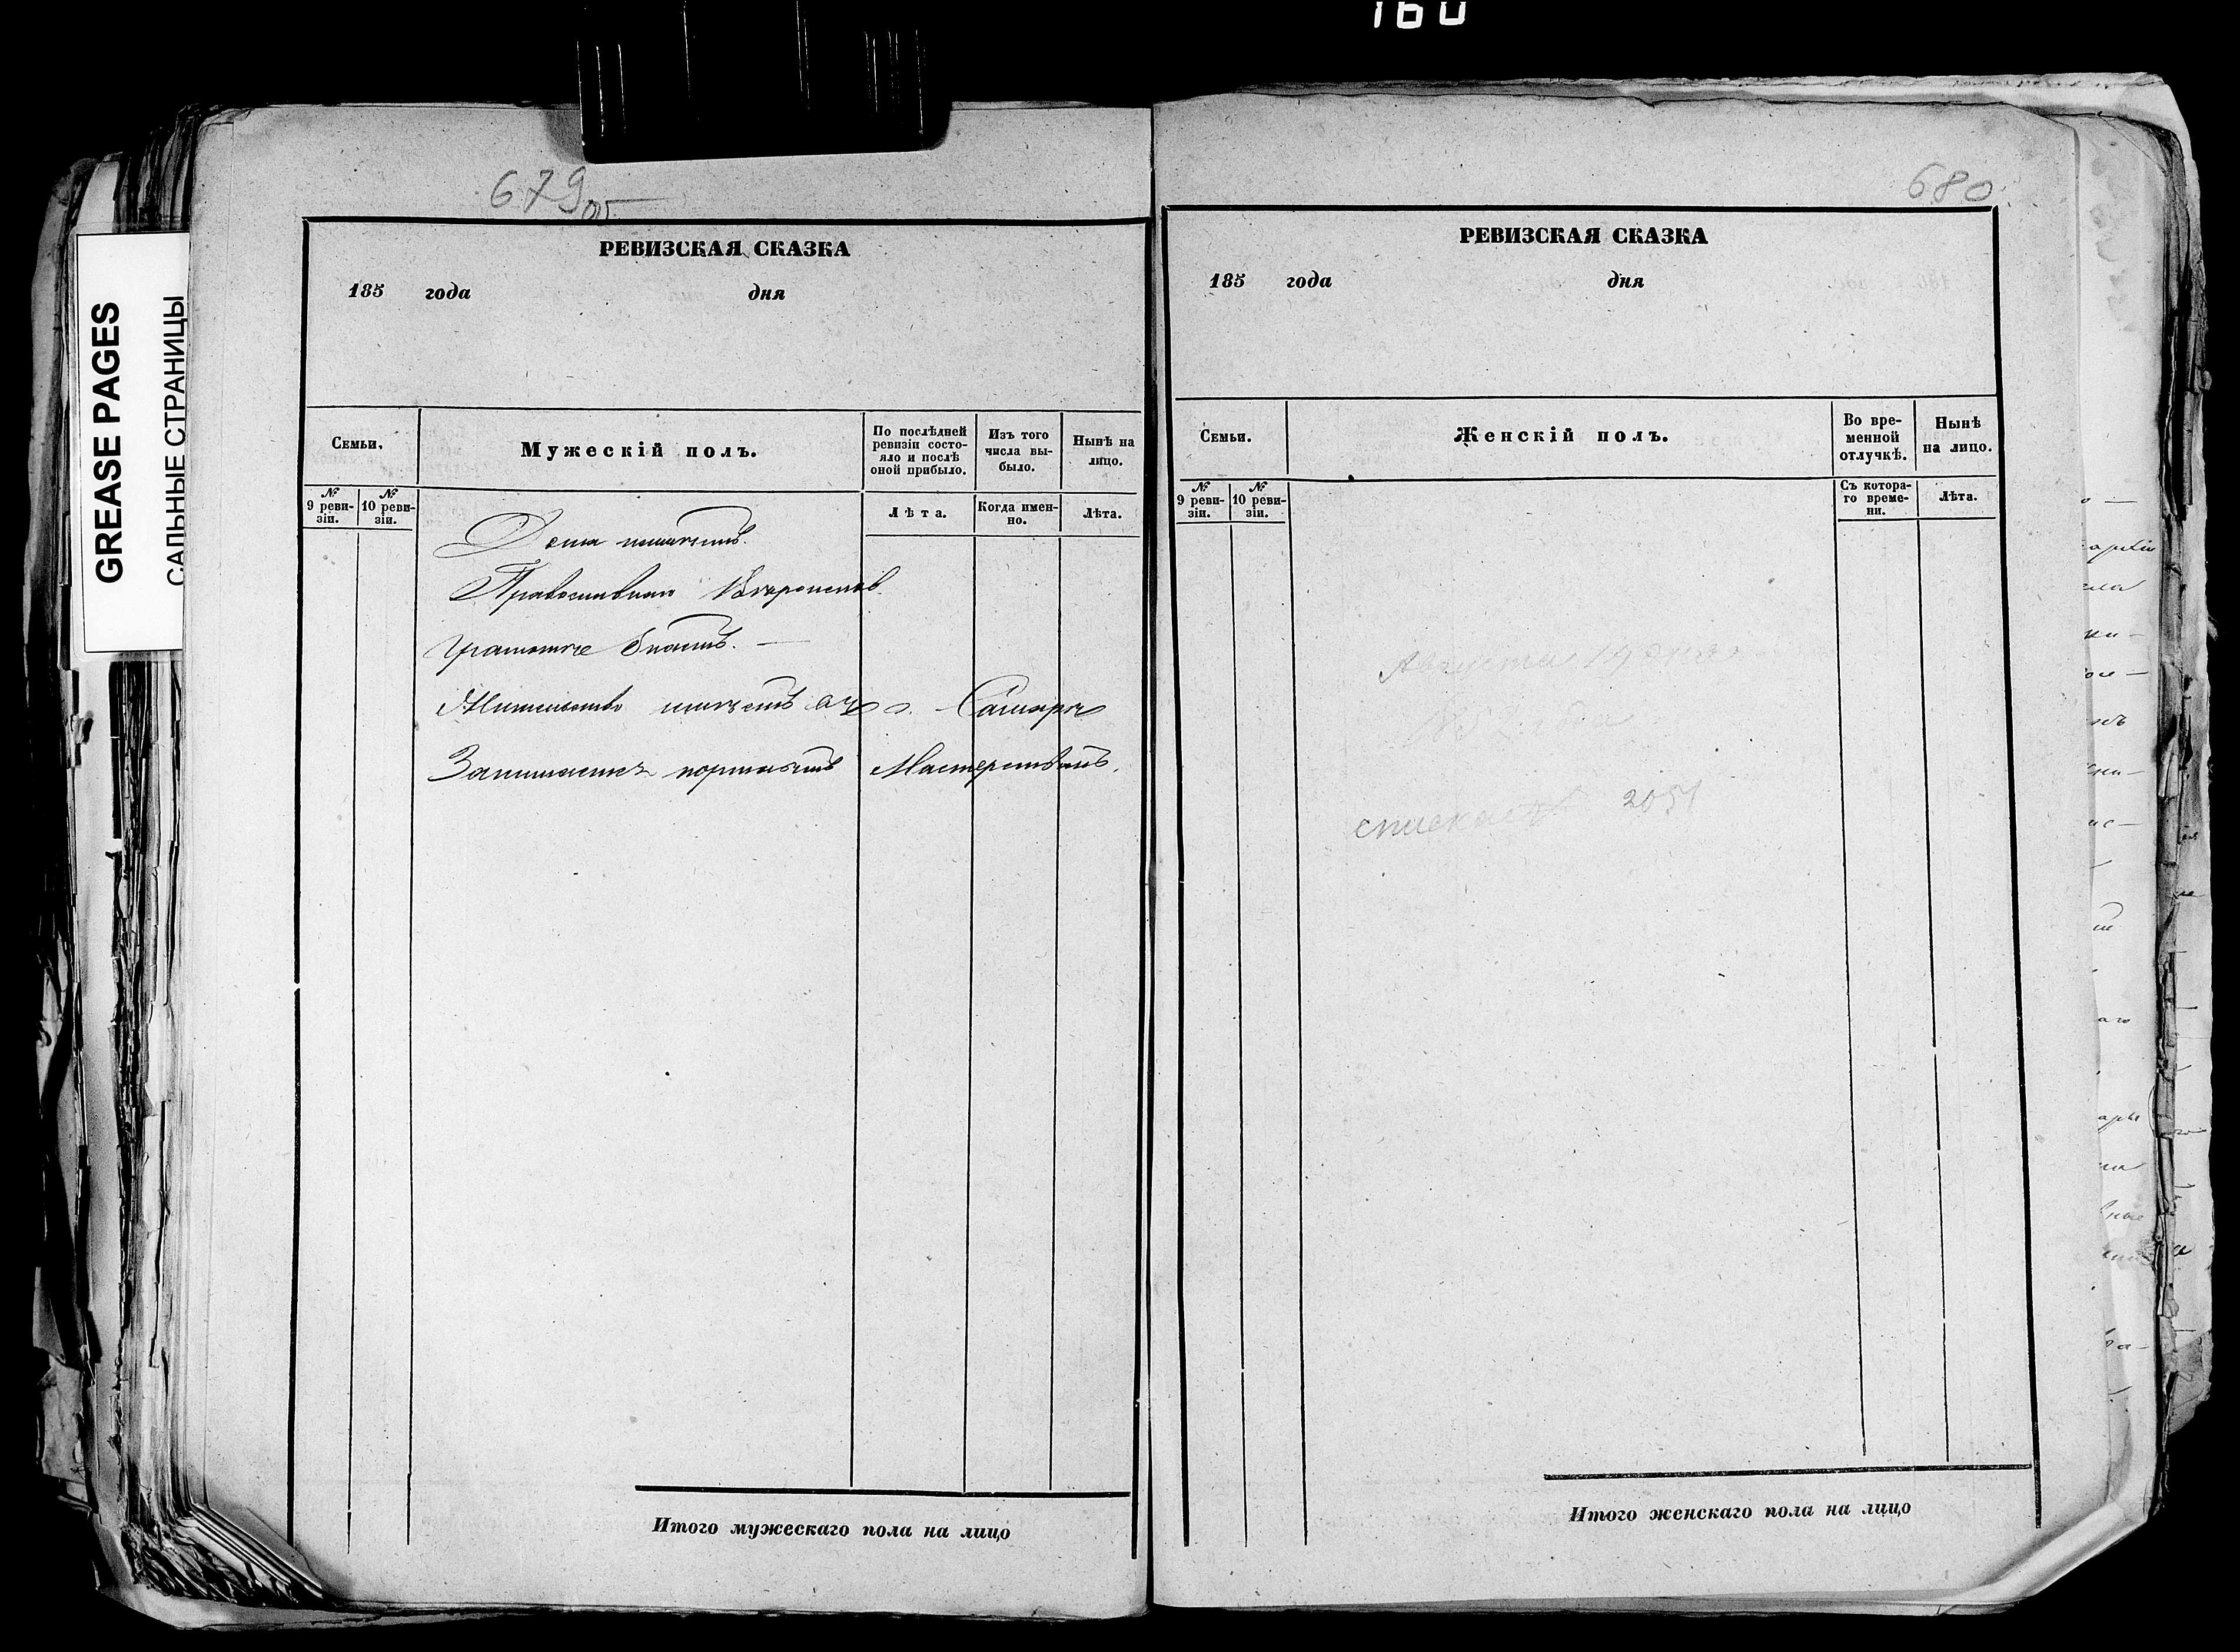 160
GREASE PAGES
САЛЬНЫЕ СТРАНИЦЫ
679 об
РЕВИЗСКАЯ СКАЗКА
185 года дня
Семьи.
Мужескій полъ.
По послѣдней ревизіи состо-
яло и послѣ оной прибыло.
Изъ того числа вы-
было.
Нынѣ на лицо.
№ 9 реви-
зіи.
№ 10 реви-
зіи.
Лѣта.
Когда имен-
но.
Лѣта.
Дома неимѣетъ.
Православнаго Вѣроисповѣд.
Грамотѣ Знаетъ. —
Жительство имѣетъ въ г. Самарѣ
Занимается портнымъ Мастерствомъ.
Итого мужескаго пола на лицо
680
РЕВИЗСКАЯ СКАЗКА
185 года дня
Семьи.
Женскій полъ.
Во вре-
менной
отлучкѣ.
Нынѣ
на лицо.
№ 9 реви-
зіи.
№ 10 реви-
зіи.
Съ котора-
го време-
ни.
Лѣта.
Августа 19 дня
2051
Итого женскаго пола на лицо